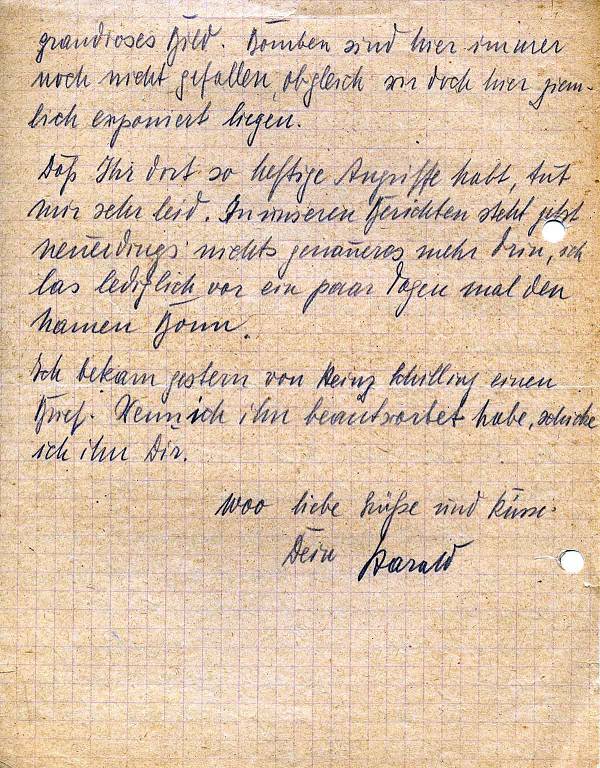 grandioses Bild. Bomben sind hier immer
noch nicht gefallen, obgleich wir doch hier ziem-
lich exponiert liegen.
Daß Ihr dort so heftige Angriffe habt, tut
mir sehr leid. In unseren Berichten steht jetzt
neuerdings nichts genaueres mehr drin, ich
las lediglich vor ein paar Tagen mal den
Namen Bonn.
Ich bekam gestern von Heinz Schilling einen
Brief. Wenn ich ihn beantwortet habe, schicke
ich ihn Dir.
1000 liebe Grüße und Küsse
Dein Harald